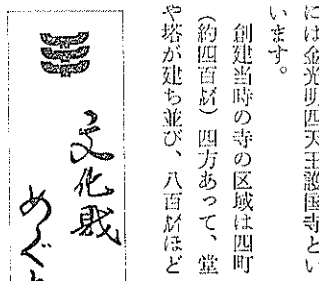 には金光明四天王護国寺とい
います。
創建当時の寺の区域は四町
（約四百㍍）四方あって、堂
や塔が建ち並び、八百㍍ほど
文化財
めぐ